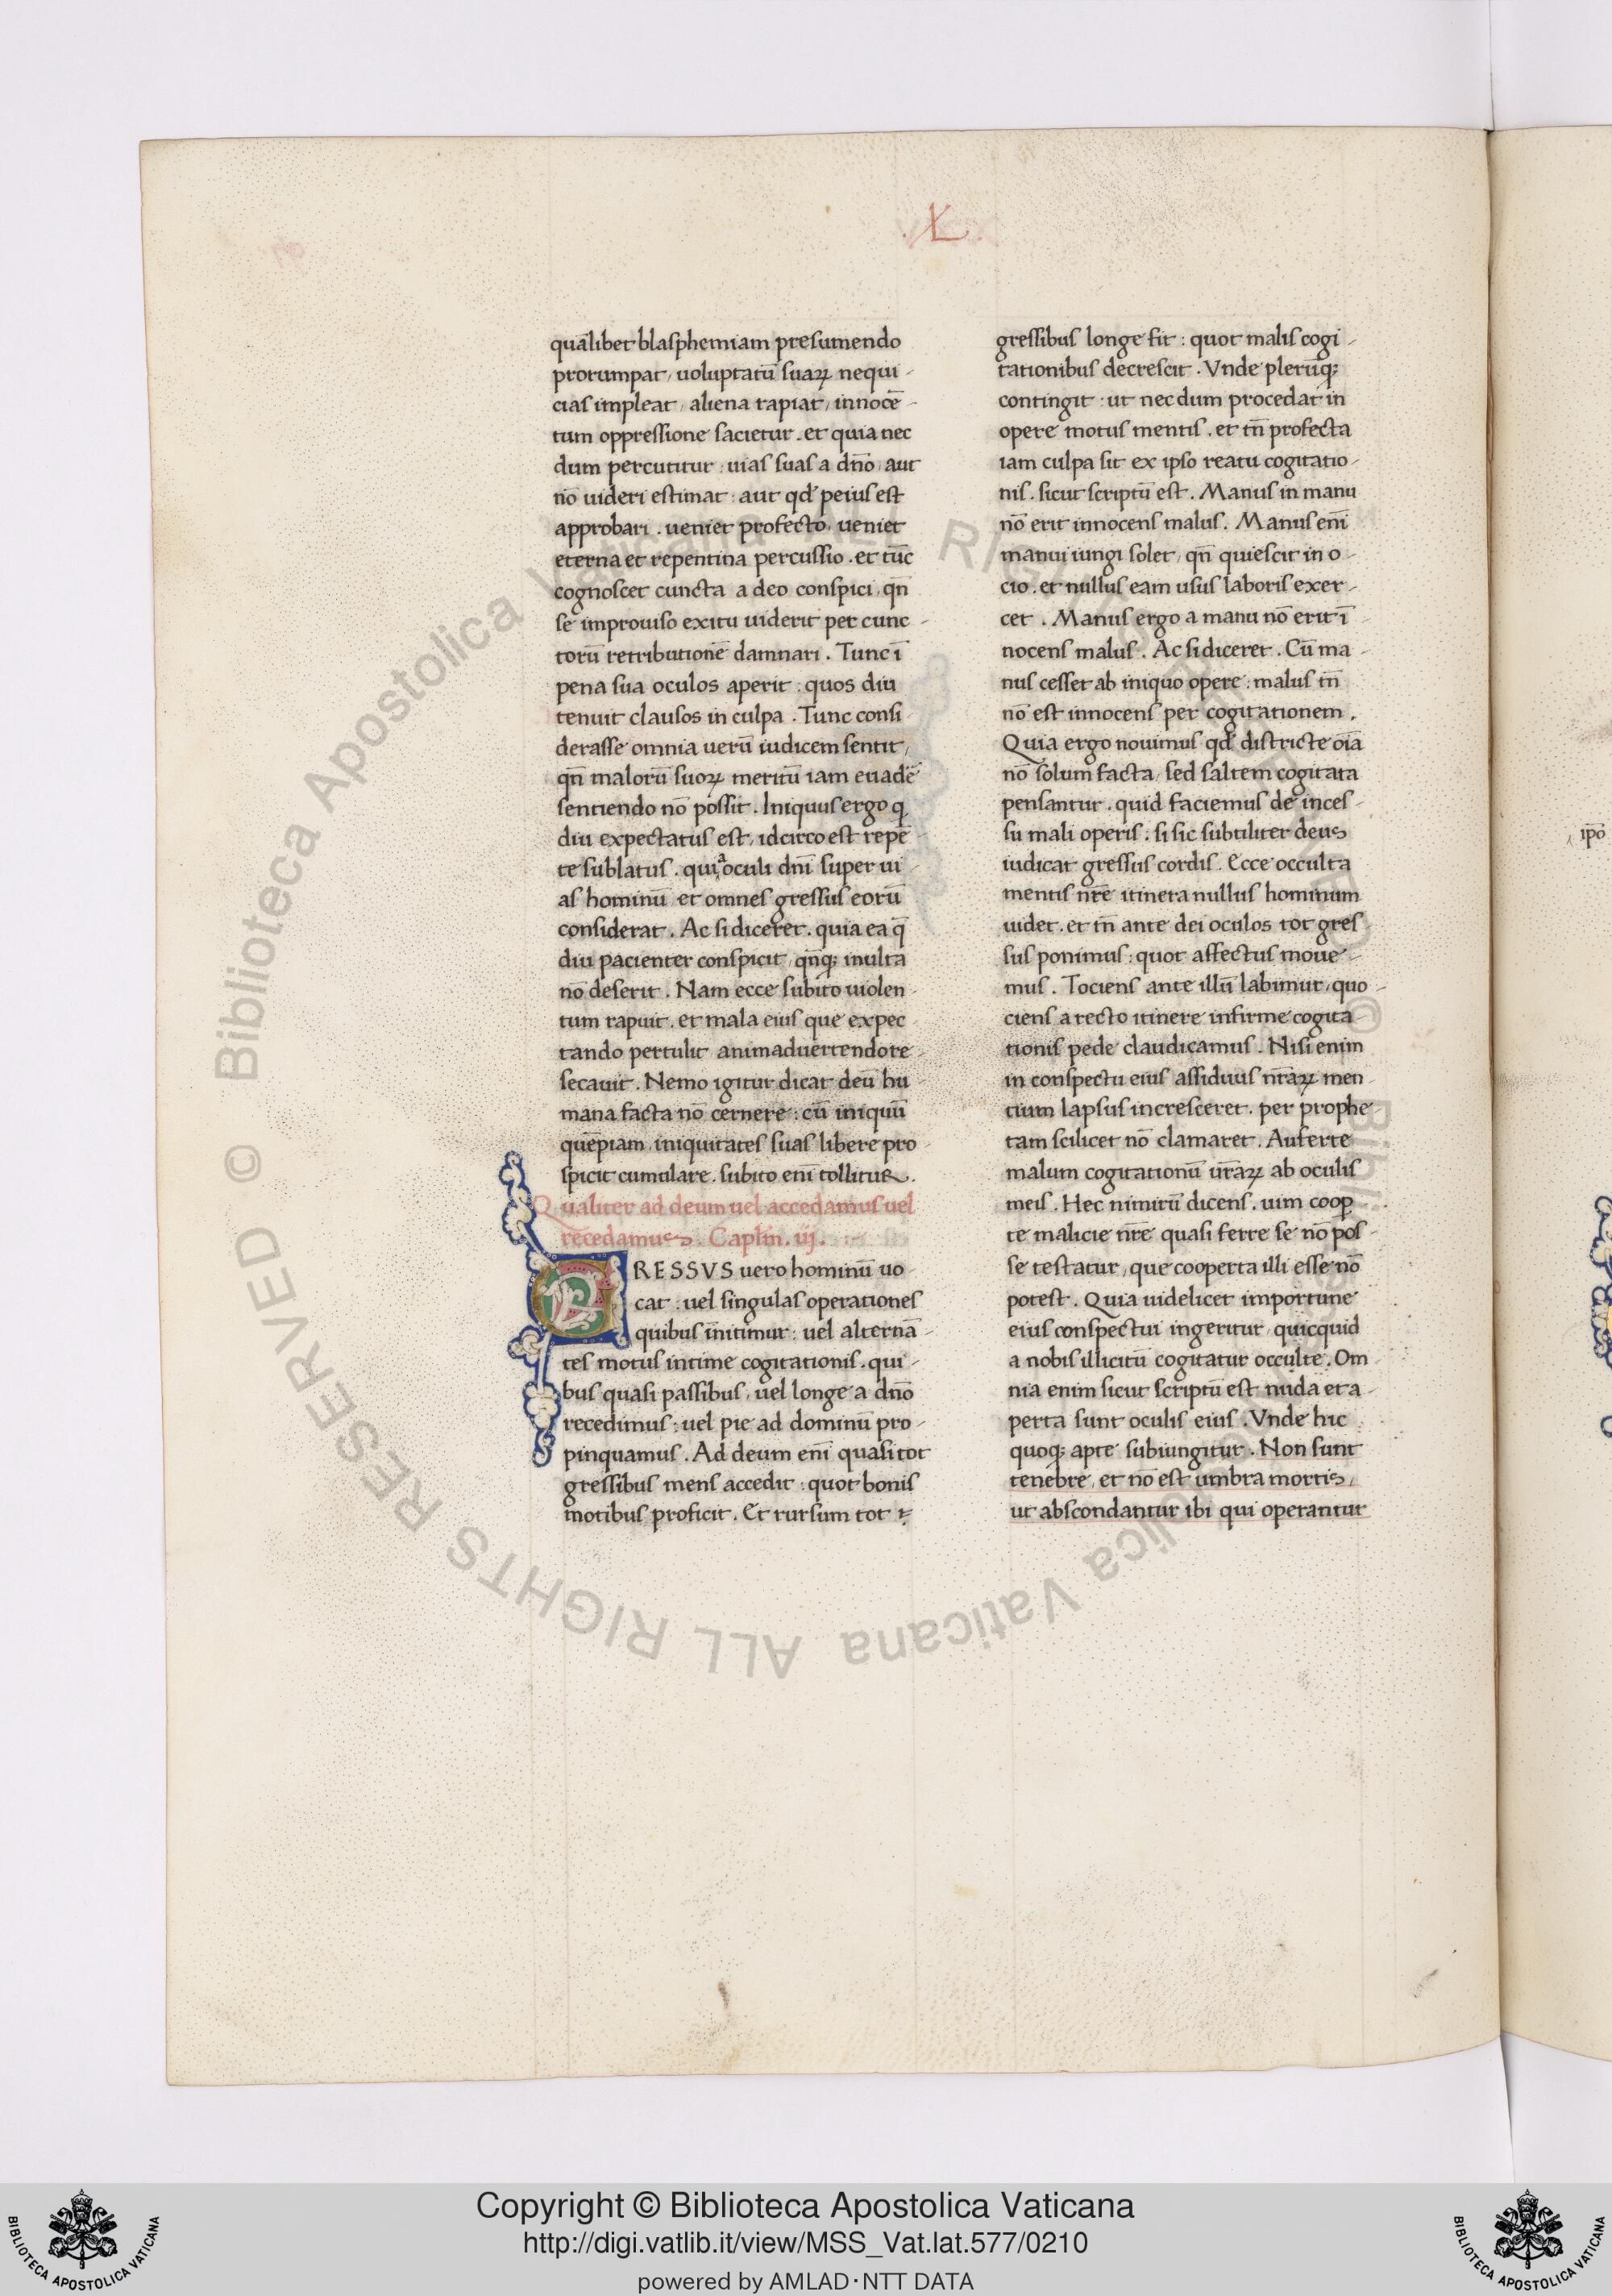 .L.
quālibet blasphemiam presumendo
prorumpat, uoluptatū suaꝝ nequi-
cias impleat, aliena rapiat, innocē-
tum oppressione sacietur. et quia nec
dum percutitur: uias suas a dn̄o, aut
nō uideri estimat: aut qd̄ peius est
approbari. ueniet profecto, ueniet
eterna et repentina percussio. et tūc
cognoscet cuncta a deo conspici, qn̄
se improuiso exitu uiderit per cunc-
torū retributionē damnari. Tunc ī
pena sua oculos aperit: quos diu
tenuit clausos in culpa. Tunc consi-
derasse omnia uerū iudicem sentit,
qn̄ malorū suoꝝ meritū iam euadē
sentiendo nō possit. Iniquus ergo q
diu expectatus est, idcirco est repē
te sublatus. quia oculi dn̄i super ui-
as hominū, et omnes gressus eorū
considerat. Ac si diceret. quia ea q̄
diu pacienter conspicit, qn̄qꝫ inulta
nō deserit. Nam ecce subito uiolen-
tum rapuit. et mala eius que expec-
tando pertulit animaduertendo re-
secauit. Nemo igitur dicat deū hu
mana facta nō cernere: cū iniquū
quepiam iniquitates suas libere pro
spicit cumulare. subito enī tollitur.
Qualiter ad deum uel accedamus uel
recedamus. Caplm̄. iij.
GRESSVS uero hominū uo
cat: uel singulas operationes
quibus īnitimur: uel alternā-
tes motus intime cogitationis. qui-
bus quasi passibus, uel longe a dn̄o
recedimus: uel pie ad dominū pro-
pinquamus. Ad deum enī quasi tot
gressibus mens accedit: quot bonis
motibus proficit. Et rursum tot
gressibus longe fit: quot malis cogi-
tationibus decrescit. Vnde plerūqꝫ
contingit: ut nec dum procedat in
opere motus mentis. et tn̄ profecta
iam culpa sit ex ipso reatu cogitatio-
nis. sicut scriptū est. Manus in manu
nō erit innocens malus. Manus enī
manui iungi solet, qn̄ quiescit in o-
cio. et nullus eam usus laboris exer-
cet. Manus ergo a manu nō erit ī
nocens malus. Ac si diceret. Cū ma-
nus cesset ab iniquo opere: malus tn̄
nō est innocens per cogitationem.
Quia ergo nouimus qd̄ districte oīa
nō solum facta, sed saltem cogitata
pensantur. quid faciemus de inces-
su mali operis: si sic subtiliter deus
iudicat gressus cordis. Ecce occulta
mentis nr̄e itinera nullus hominum
uidet. et tn̄ ante dei oculos tot gres-
sus ponimus: quot affectus moue-
mus. Tociens ante illū labimur, quo-
ciens a recto itinere infirme cogita-
tionis pede claudicamus. Nisi enim
in conspectu eius assiduus nr̄aꝝ men-
tium lapsus incresceret. per prophe-
tam scilicet nō clamaret. Auferte
malum cogitationū ur̄aꝝ ab oculis
meis. Hec nimirū dicens. uim coop
te malicie nr̄e quasi ferre se nō pos-
se testatur, que cooperta illi esse nō
potest. Quia uidelicet importune
eius conspectui ingeritur, quicquid
a nobis illicitū cogitatur occulte. Om-
nia enim sicut scriptū est nuda et a-
perta sunt oculis eius. Vnde hic
quoqꝫ apte subiungitur. Non sunt
tenebre, et nō est umbra mortis,
ut abscondantur ibi qui operantur
ip̄o
© Biblioteca Apostolica Vaticana ALL RIGHTS RESERVED
Copyright © Biblioteca Apostolica Vaticana
http://digi.vatlib.it/view/MSS_Vat.lat.577/0210
powered by AMLAD·NTT DATA
BIBLIOTECA APOSTOLICA VATICANA
BIBLIOTECA APOSTOLICA VATICANA